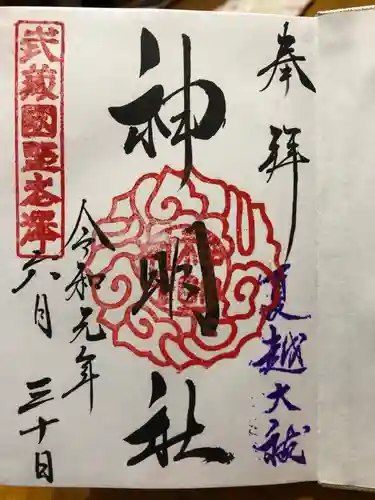 奉拝
夏越大祓
神明社
令和元年
六月三十日
武蔵國